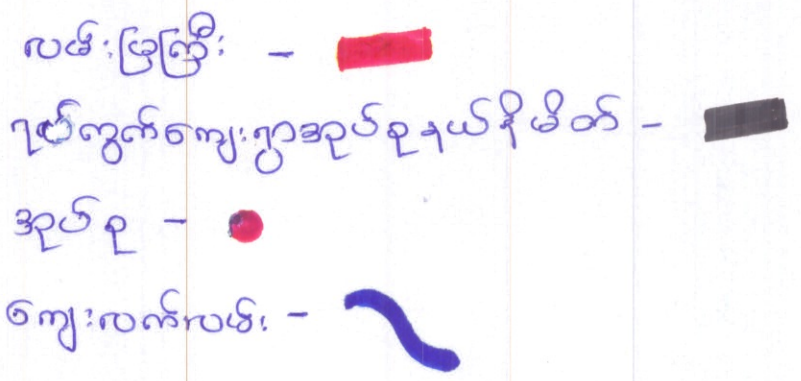 လမ်းမကြီး -
ရပ်ကွက်ကျေးရွာအုပ်စုနယ်နိမိတ် -
အုပ်စု -
ကျေးလက်လမ်း -